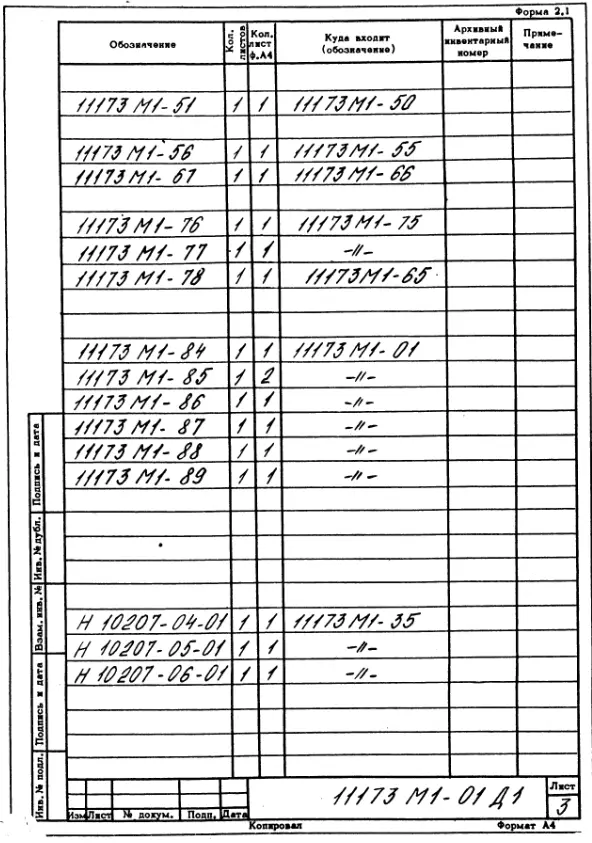 Форма 2.1
Обозначение Кол. листов Кол. лист ф.А4 Куда входит (обозначение) Архивный инвентарный номер Приме-чание
11173 М1-51 1 1 11173М1-50
11173 М1-56 1 1 11173М1-55
11173М1-67 1 1 11173М1-66
11173 М1-76 1 1 11173М1-75
11173 М1-77 1 1 -//-
11173 М1-78 1 1 11173М1-65
11173 М1-84 1 1 11173М1-01
11173 М1-85 1 2 -//-
11173М1-86 1 1 -//-
11173М1-87 1 1 -//-
11173 М1-88 1 1 -//-
11173М1-89 1 1 -//-
Н 10207-04-01 1 1 11173М1-35
Н 10207-05-01 1 1 -//-
Н 10207-06-01 1 1 -//-
Инв. № подл. Подпись и дата Взам. инв. № Инв. № дубл. Подпись и дата
11173 М1-01 Д1
Лист
3
Изм Лист № докум. Подп. Дата
Копировал Формат А4